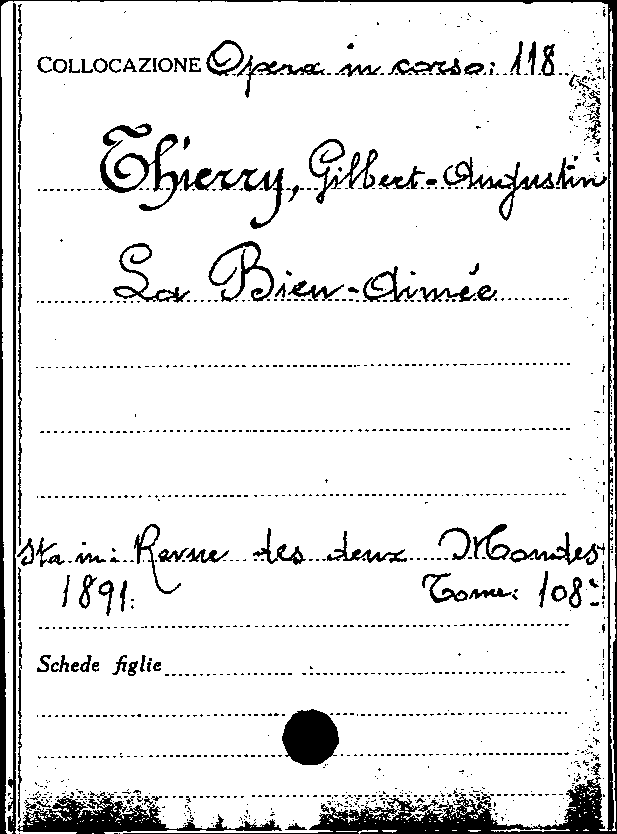 COLLOCAZIONE Opera in corso: 118
Thierry, Gilbert-Augustin
La Bien-Aimée
Sta in: Revue des deux Mondes
1891. Tome: 108°
Schede figlie